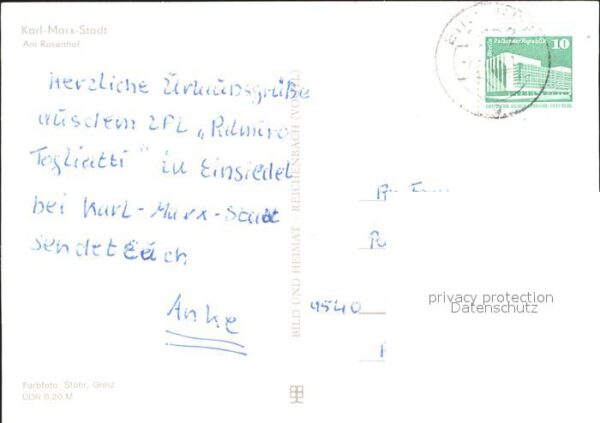 Karl-Marx-Stadt
Am Rosenhof
Berlin, Palast der Republik
10
DEUTSCHE DEMOKRATISCHE REPUBLIK
Herzliche Urlaubsgrüße
aus dem ZPL „Palmiro
Togliatti" in Einsiedel
bei Karl-Marx-Stadt
sendet Euch
Anke
BILD UND HEIMAT · REICHENBACH (VOGTL)
9540
privacy protection
Datenschutz
Farbfoto: Stöhr, Greiz
DDR 0,20 M